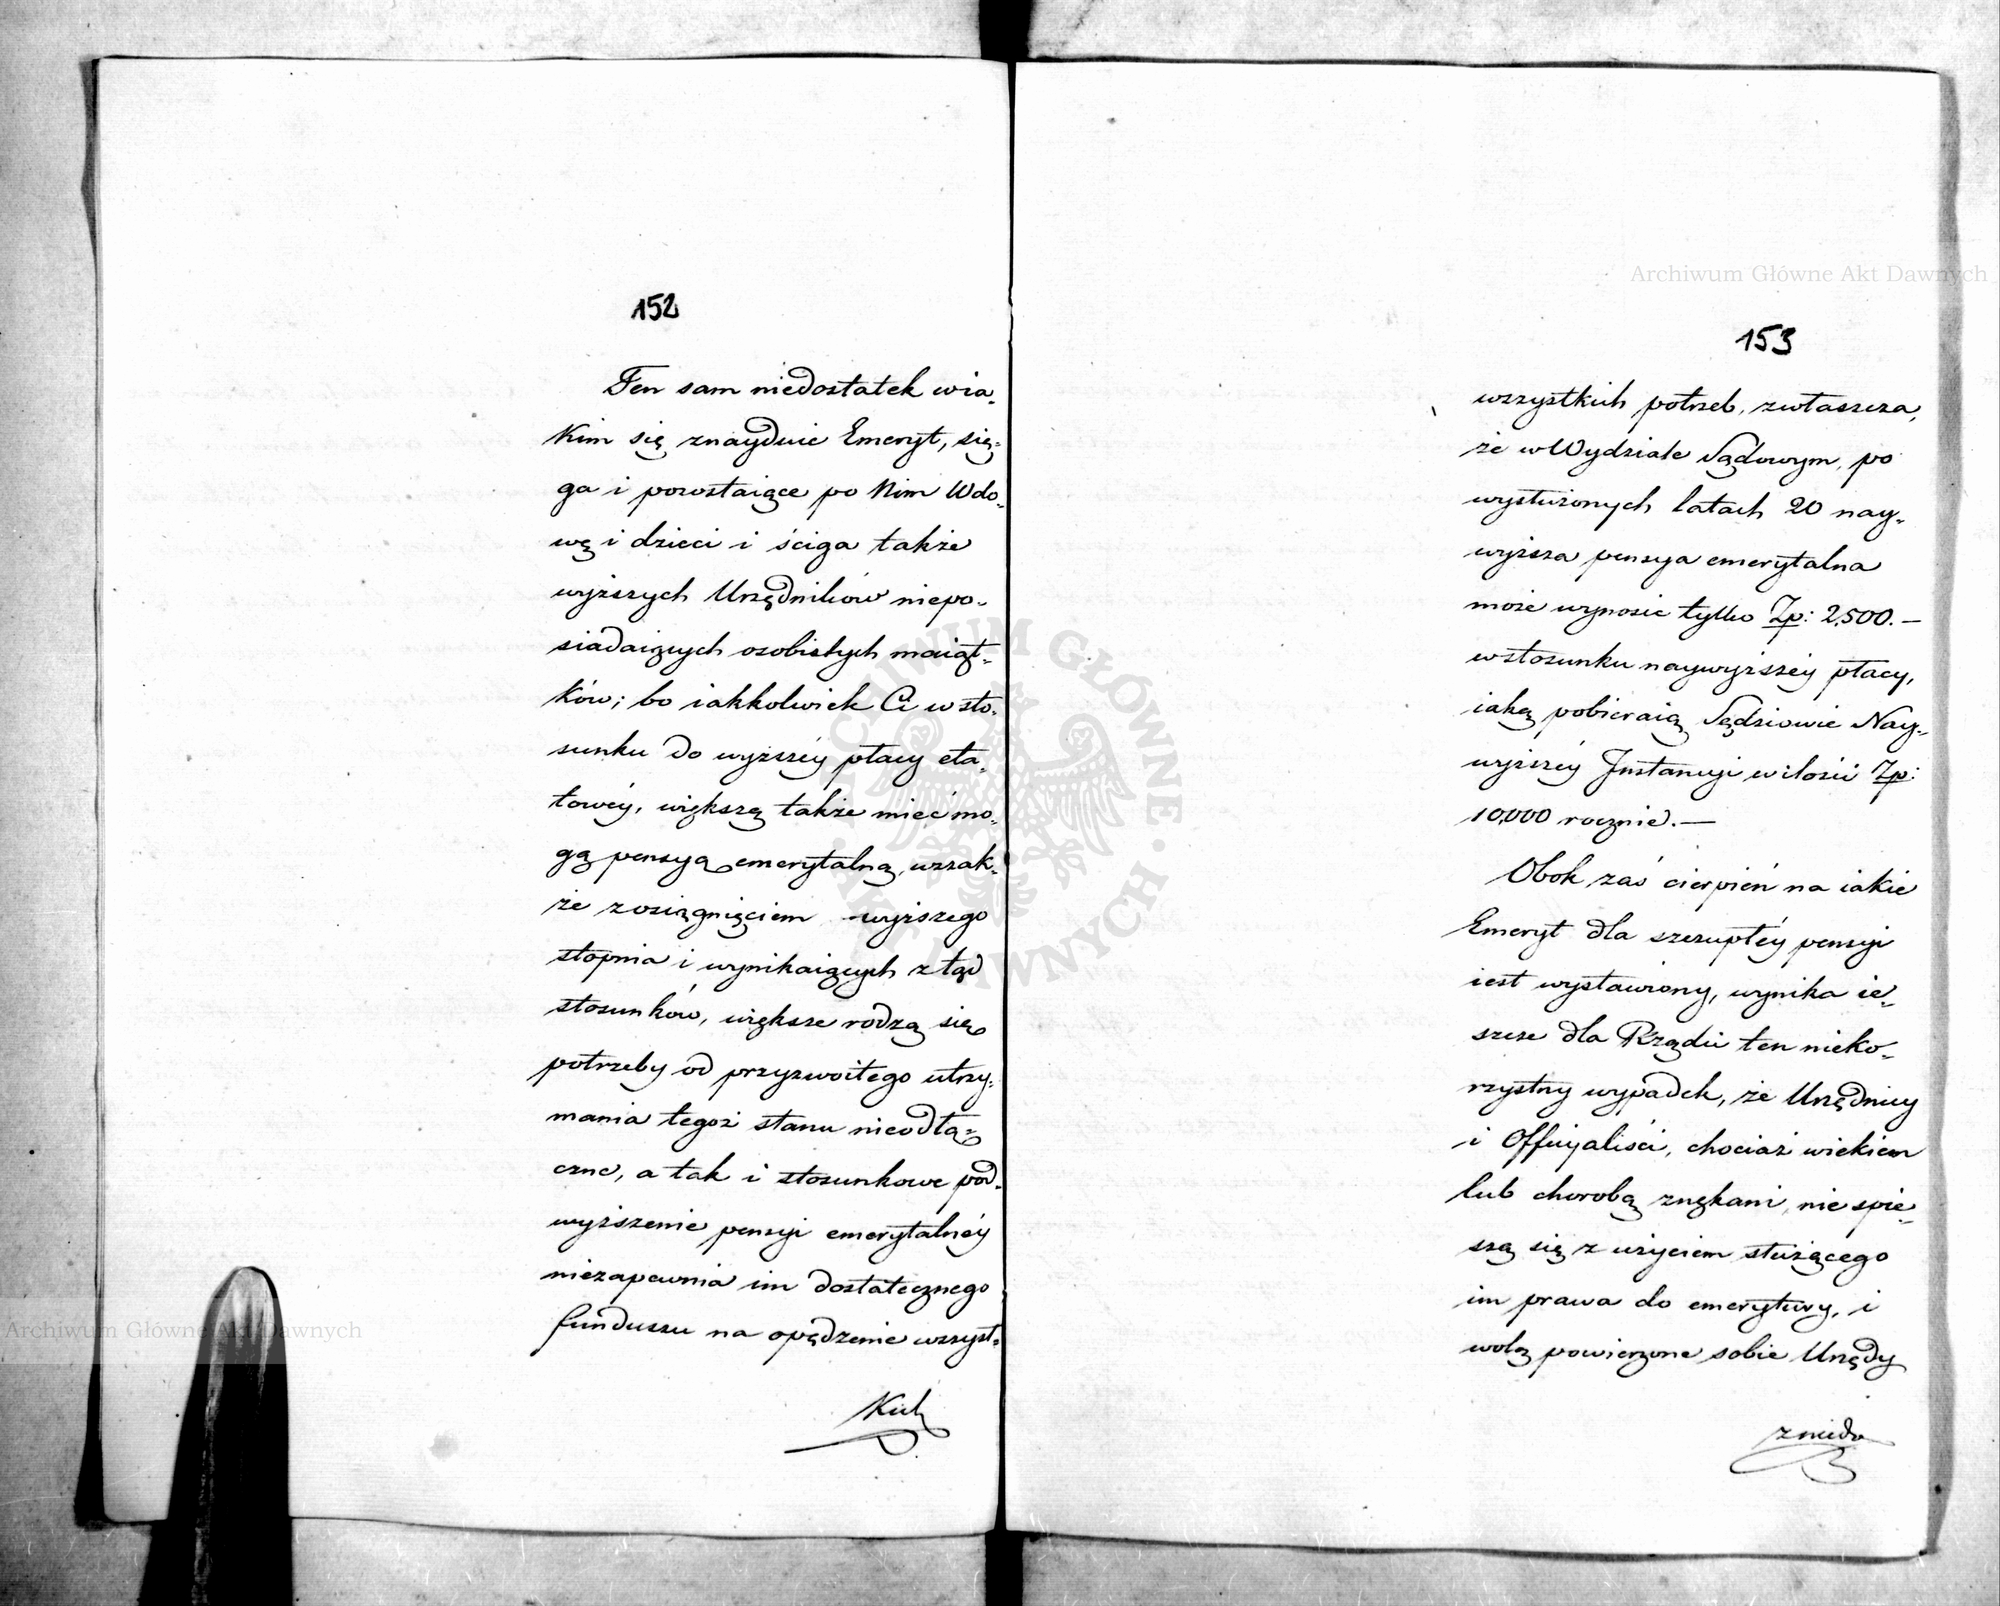 152
Ten sam niedostatek wia-
kim się znayduie Emeryt, się-
ga i pozostaiące po Nim Wdo-
wę i dzieci i ściga także
wyższych Urzędników niepo-
siadaiących osobistych maiąt-
ków; bo iakkolwiek Ci w sto-
sunku do wyższéy płacy eta-
towéy, większą także mieć mo-
gą pensyą emerytalną, wszak-
że z osiągnięciem wyższego
stopnia i wynikaiących ztąd
stosunków, większe rodzą się
potrzeby od przyzwoitego utrzy-
mania tegoż stanu nieodłą-
czne, a tak i stosunkowe pod-
wyższenie pensyi emerytalnéy
niezapewnia im dostatecznego
funduszu na opędzenie wszyst-
kich
153
wszystkich potrzeb, zwłaszcza,
że w Wydziale Sądowym, po
wysłużonych latach 20 nay-
wyższa pensya emerytalna
może wynosić tylko Zp: 2,500.—
w stosunku naywyższéy płacy,
iaką pobieraią Sędziowie Nay-
wyższéy Instancyi w ilości Zp:
10,000 rocznie.—
Obok zaś cierpień na iakie
Emeryt dla szczupłéy pensyi
iest wystawiony, wynika ie-
szcze dla Rządu ten nieko-
rzystny wypadek, że Urzędnicy
i Officyaliści, chociaż wiekiem
lub chorobą znękani, nie spie-
szą się z użyciem służącego
im prawa do emerytury, i
wolą powierzone sobie Urzędy
Archiwum Główne Akt Dawnych
Archiwum Główne Akt Dawnych
ARCHIWUM GŁÓWNE AKT DAWNYCH